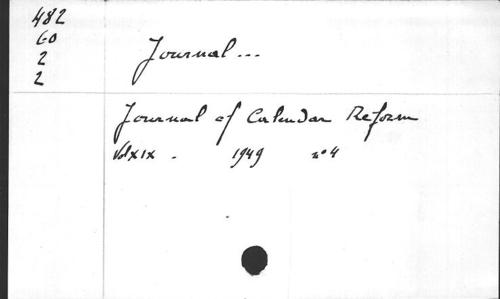 482
60
2
2
Journal...
Journal of Calendar Reform
Vol XIX . 1949 nº 4